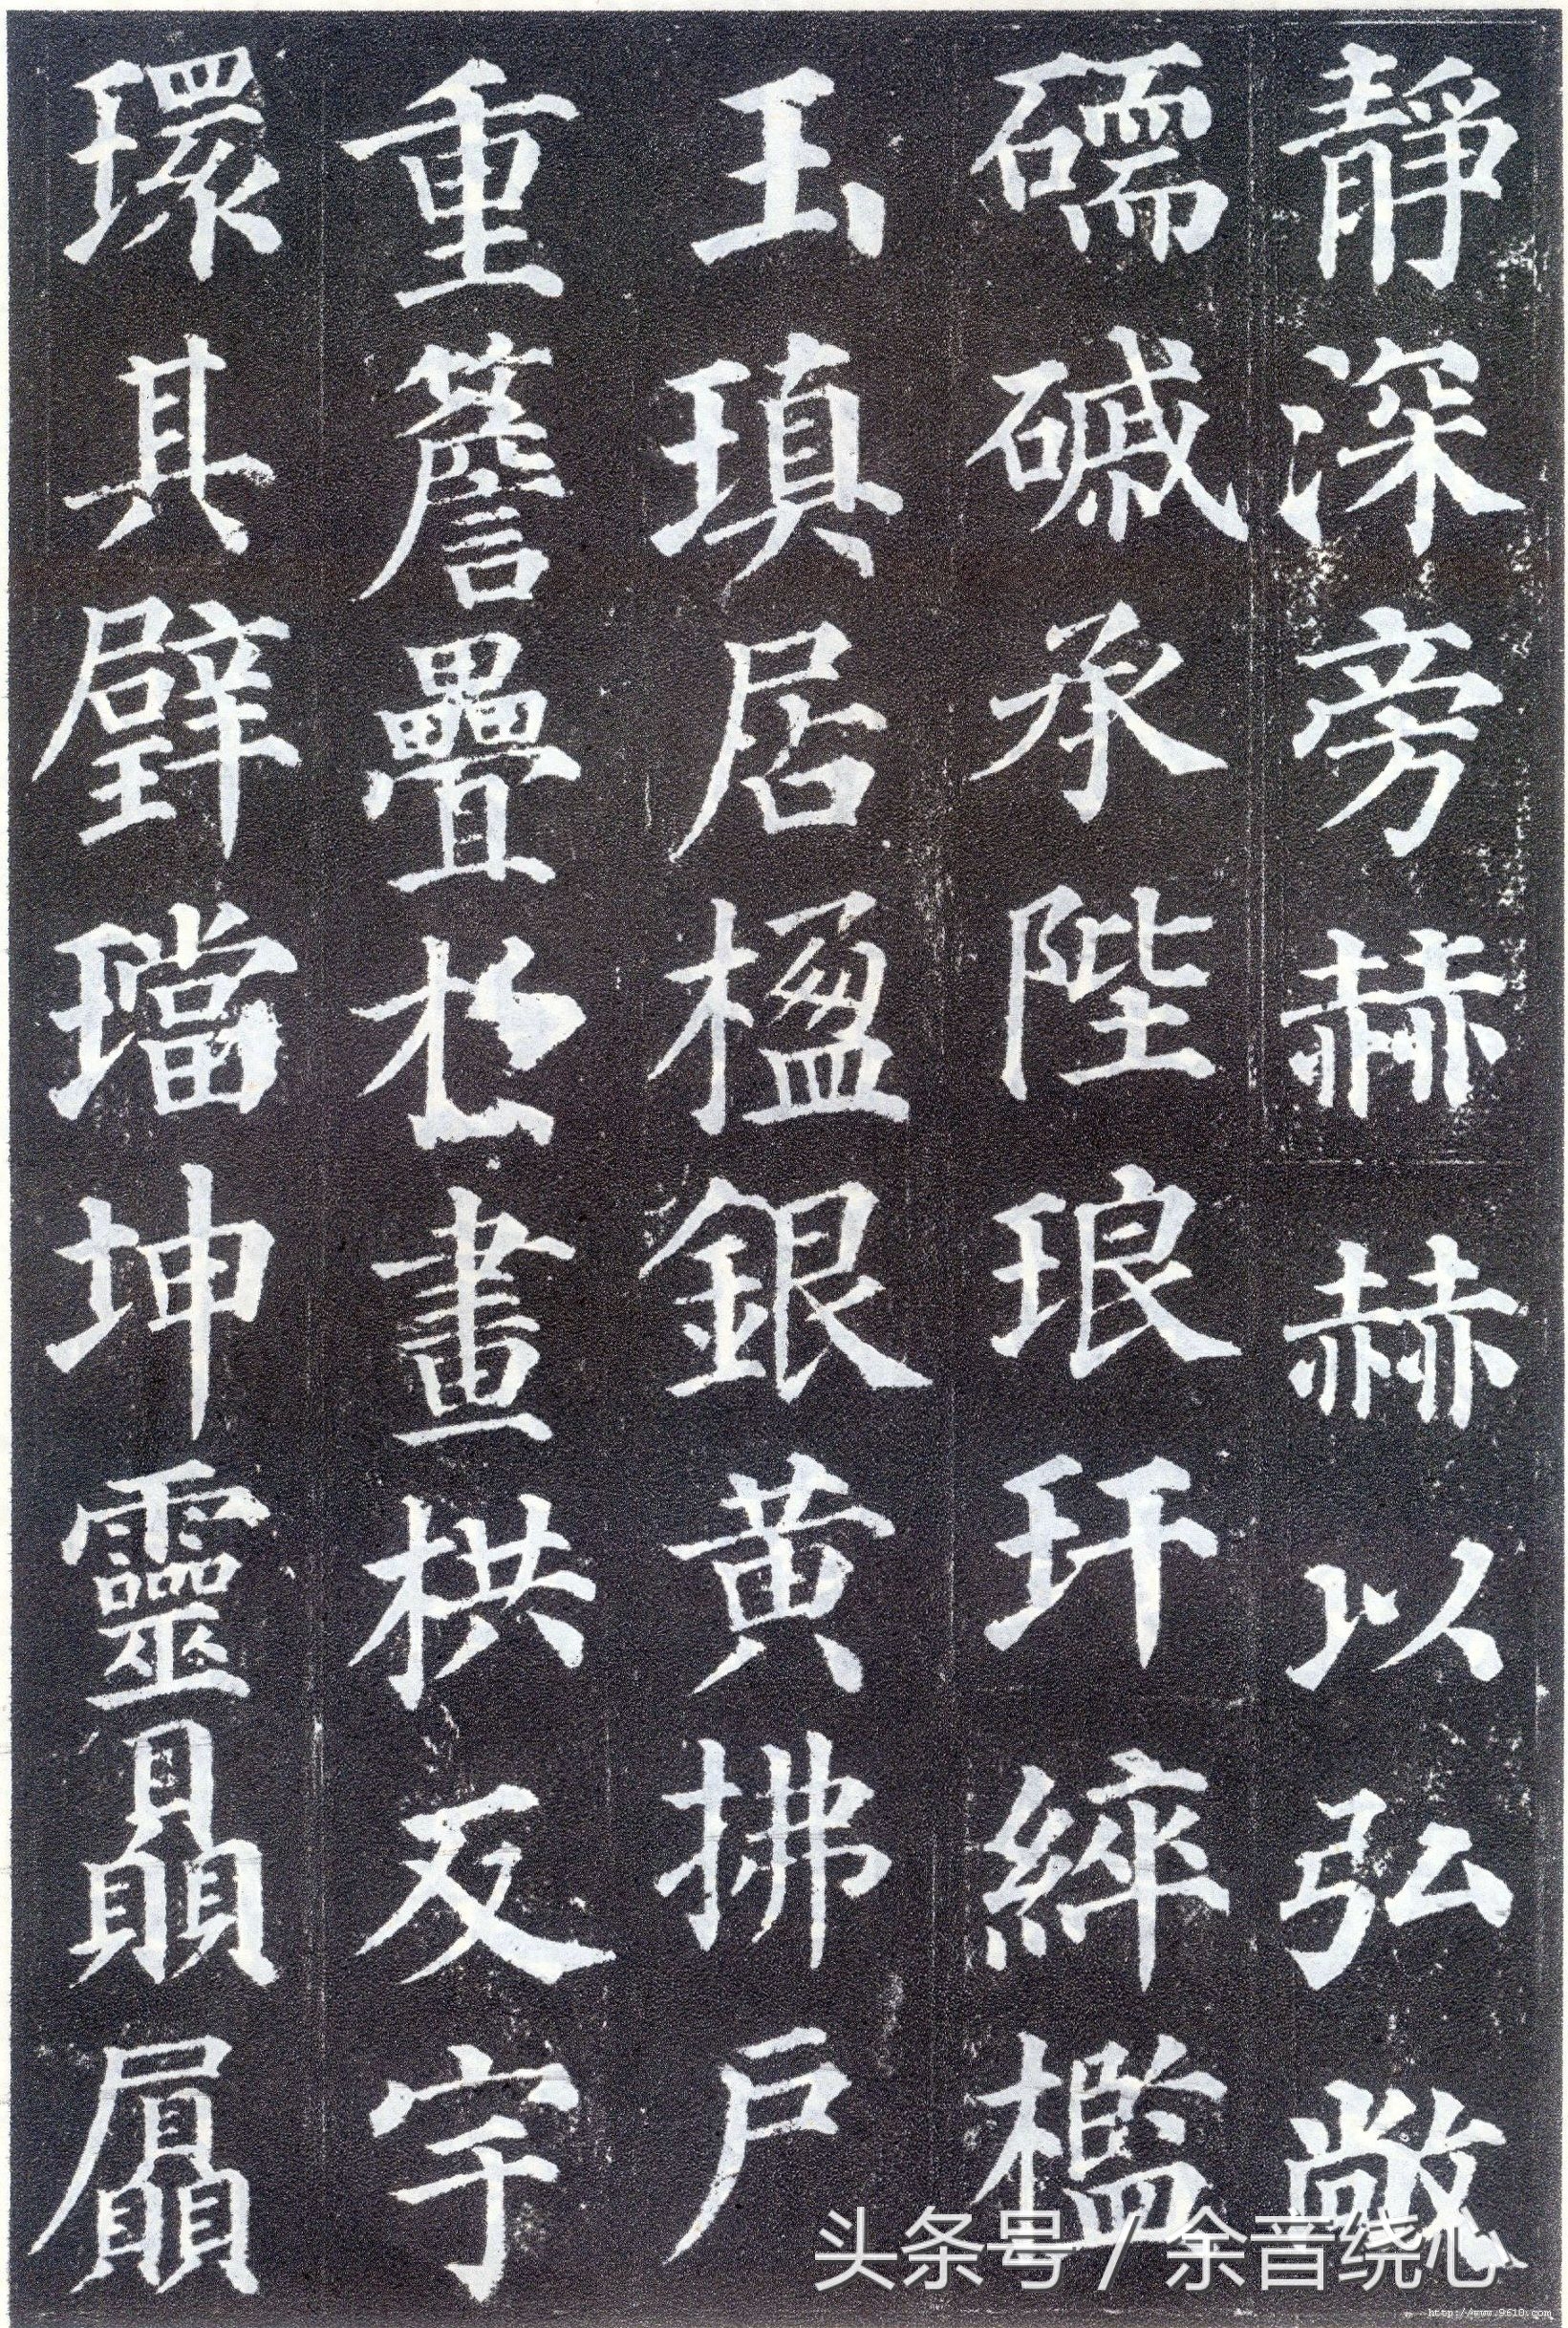 靜深旁赫赫以弘敞
礝磩承陛琅玕綷檻
玉瑱居楹銀黃拂戶
重簷疊栌畫栱反宇
環其璧璫坤靈贔屭
头条号 / 余音绕心
http://www.9610.com